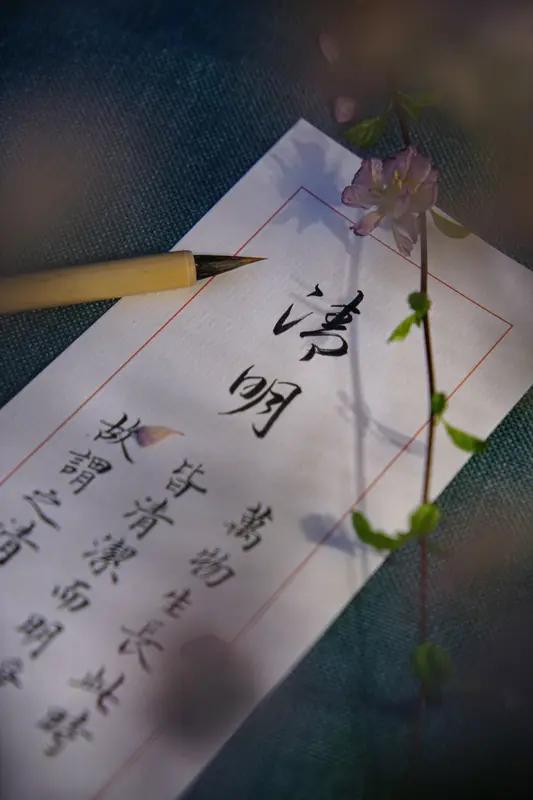 清明
萬物生長此時
皆清潔而明
故謂之清